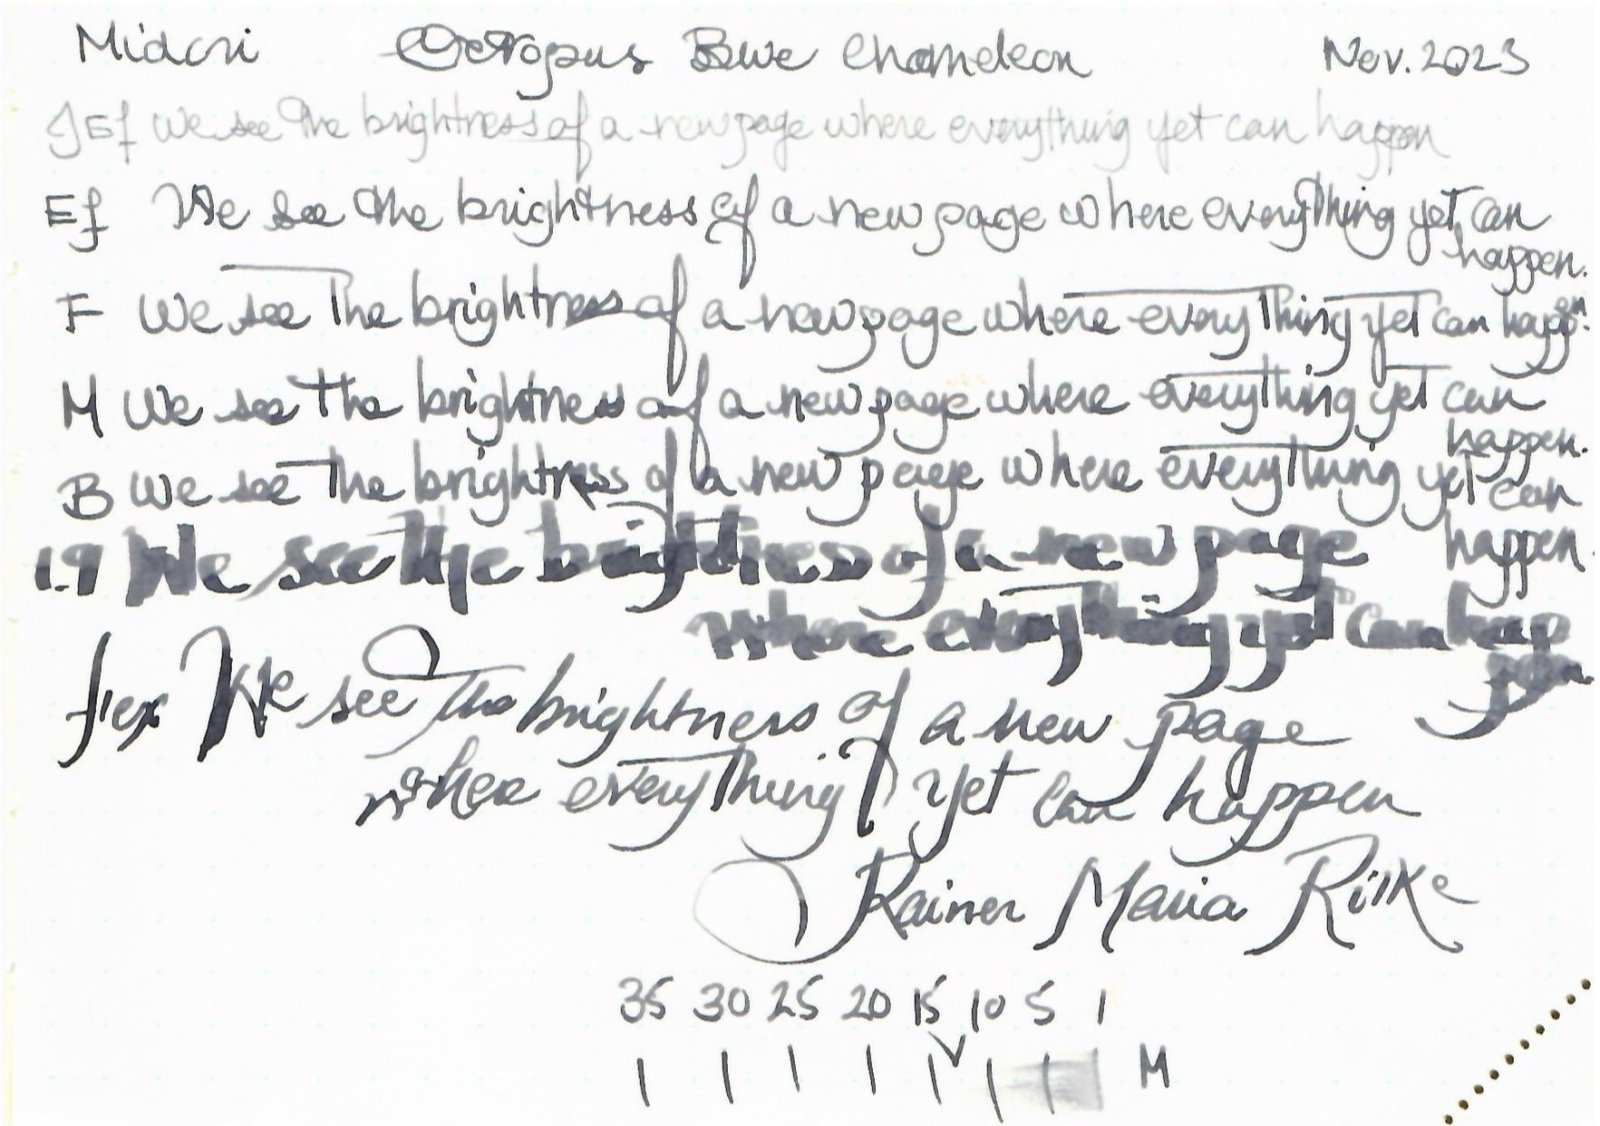 Midori Octopus Blue Chameleon Nov. 2023
JEf We see the brightness of a new page where everything yet can happen
Ef We see the brightness of a new page where everything yet can
happen.
F We see the brightness of a new page where everything yet can happen.
M We see the brightness of a new page where everything yet can
happen.
B We see the brightness of a new page where everything yet can
happen.
1.9 We see the brightness of a new page
where everything yet can hap
pen.
flex We see the brightness of a new page
where everything yet can happen
Rainer Maria Rilke
35 30 25 20 15 10 5 1
M